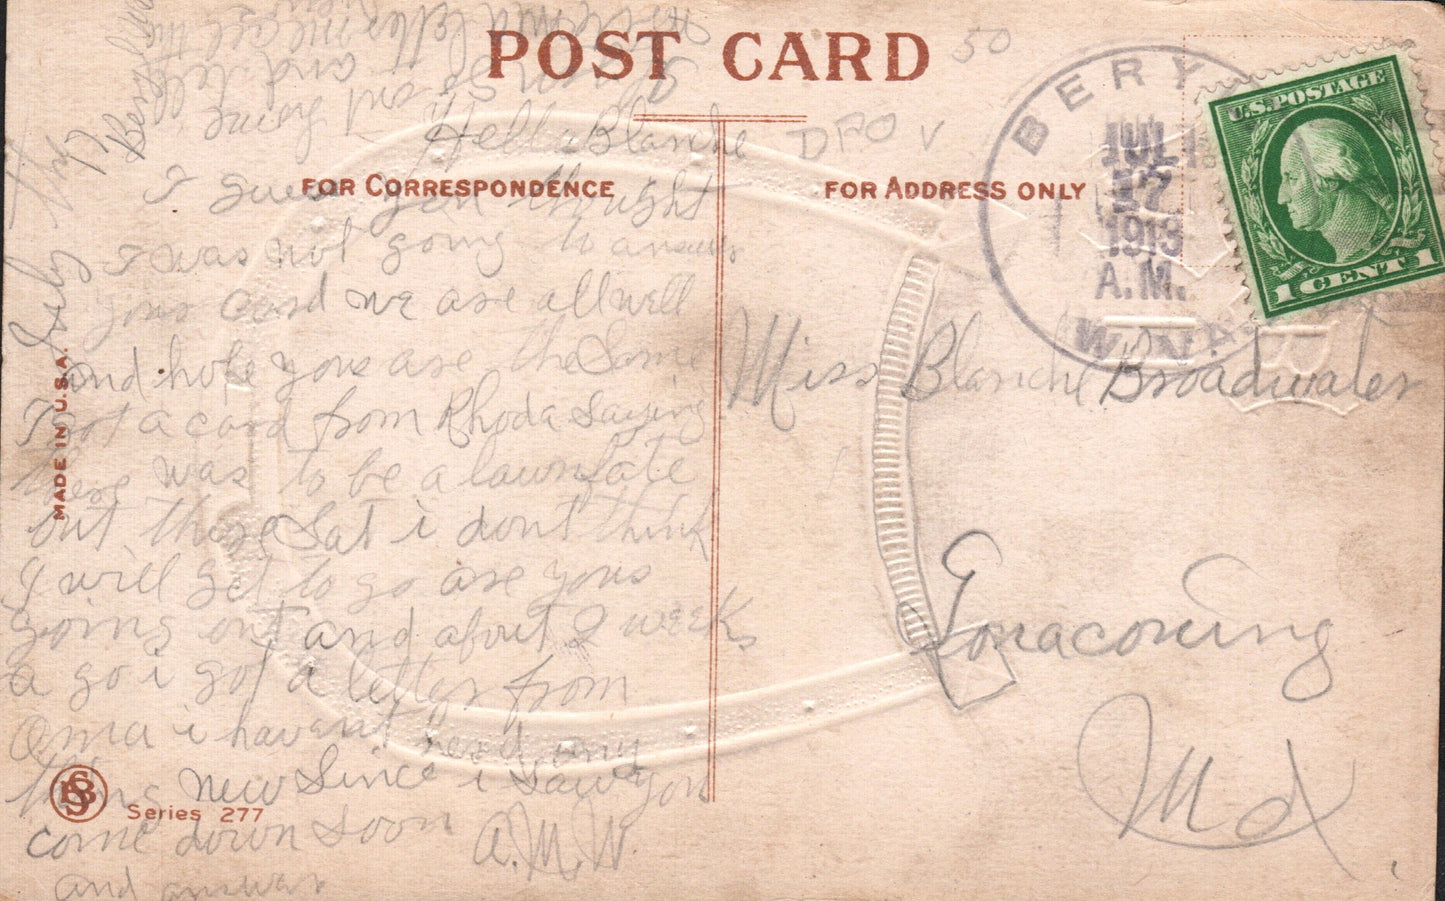 POST CARD
50
DPO V
FOR CORRESPONDENCE
FOR ADDRESS ONLY
BERY
JUL
17
1913
A.M.
W.VA.
U.S. POSTAGE
1 CENT 1
Hello Blanche
I gues you thought
I was not going to answer
your card we are all well
and hope you are the Same
I got a card from Rhoda Saying
there was to be a lawnfate
out there Sat i dont think
I will get to go are you
going out and about 2 weeks
a go i got a letter from
Oma i havent heard any
thing new Since i Saw you
come down Soon A.M.W.
and answer
Miss Blanche Broadwater
Lonaconing
Md
MADE IN U.S.A.
Series 277